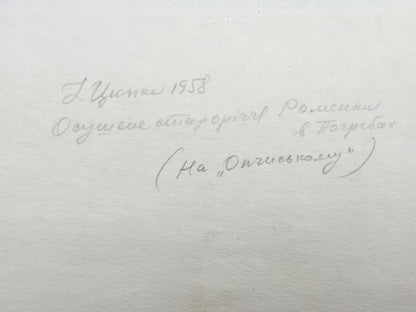 І. Цюпка 1958
Осушене старорічче Роменки
в Погребах
(На "Опчиському")